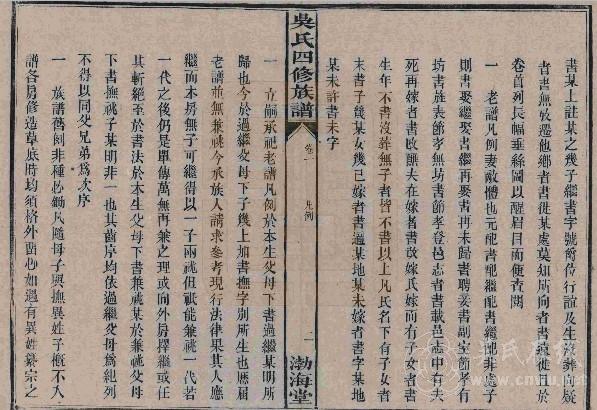 書某上註某之幾子繼書字號爵位行誼及生
者書無攷遷他鄉者書徙某處莫知所向者書莫徙且於
卷首列長幅垂絲圖以醒眉目而便查閱
一 老譜凡例妻敵體也元配書配繼配書繼配非處子
則書娶繼娶書繼再娶書再未歸書聘妾書副室節孝有
坊書旌表節孝無坊書節孝登邑志者書載邑志中有夫
死再嫁者書改醮夫在嫁者書故嫁氏嫁而有子女者書
生年不書沒葬無子者皆不書以上凡氏名下有子女者
末書子幾某女幾已嫁者書適某地某未嫁者書字某地
某未許書未字
吳氏四修族譜
卷一
凡例
一
渤海堂
一 立嗣承祧老譜凡例於本生父母下書過繼某明所
歸也今於過繼父母下子幾上加書撫字別所生也歷屆
老譜並無兼祧今承族人請求參考現行法律果其人應
繼而本房無子可繼得以一子兩祧但祇能兼祧一代若
一代之後仍是單傳萬無再兼之理或向外房擇繼或任
其斬絕至於書法於本生父母下書兼祧某於兼祧父母
下書撫祧子某明非一也其齒序均依過繼父母為組列
不得以同父兄弟為次序
一 族譜舊例非種必鋤凡隨母子與撫異姓子概不入
譜各房修造草底時均須格外留心如遇有異姓亂宗之